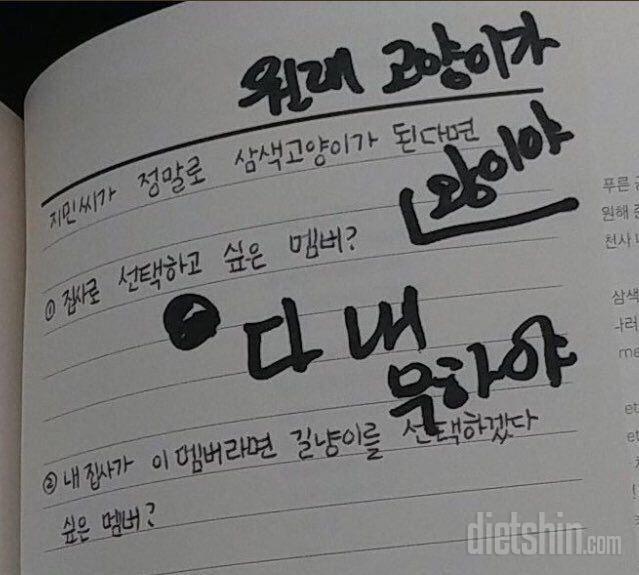 원래 고양이가
지민씨가 정말로 삼색고양이가 된다면
왕이야
① 집사로 선택하고 싶은 멤버?
다 내
부하야
② 내 집사가 이 멤버라면 길냥이를 선택하겠다
싶은 멤버?
푸른
원해
천사
삼색
나러
me
et
et
dietshin.com